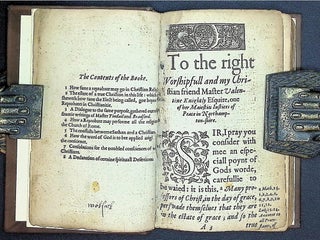 The Contents of the Booke.
1 How farre a reprobate may go in Christian Religion.
2 The estate of a true Christian in this life: which
sheweth how farre the Elect being called, goe beyond
Reprobate in Christianitie.
3 A Dialogue to the same purpose, gathered out
writings of Maister Tindall and Bradford.
4 How a Reprobate may performe all the religion of
the Church of Rome.
5 The conflicts betweene Sathan and a Christian.
6 How the word of God is to be applied
7 Consolations for the troubled consciences of
8 A Declaration of certaine spirituall Desertions
To the right
Worshipfull and my Chri-
stian friend Master Valen-
tine Knightly Esquire, one
of her Maiesties Iustices of
Peace in Northamp-
ton-shire.
SIR, I pray you
consider with
me an espe-
ciall poynt of
Gods worde,
carefullie to
be waied: it is this, Many pro-
fessors of Christ, in the day of grace,
perswade themselues that they are
in the estate of grace; and so the
A 3